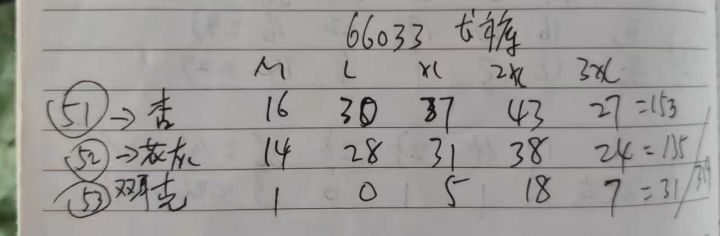 66033
M L XL 2XL 3XL
51 → 杏 16 30 37 43 27 = 153
52 → 灰 14 28 31 38 24 = 135
53 1 0 5 18 7 = 31 / 319